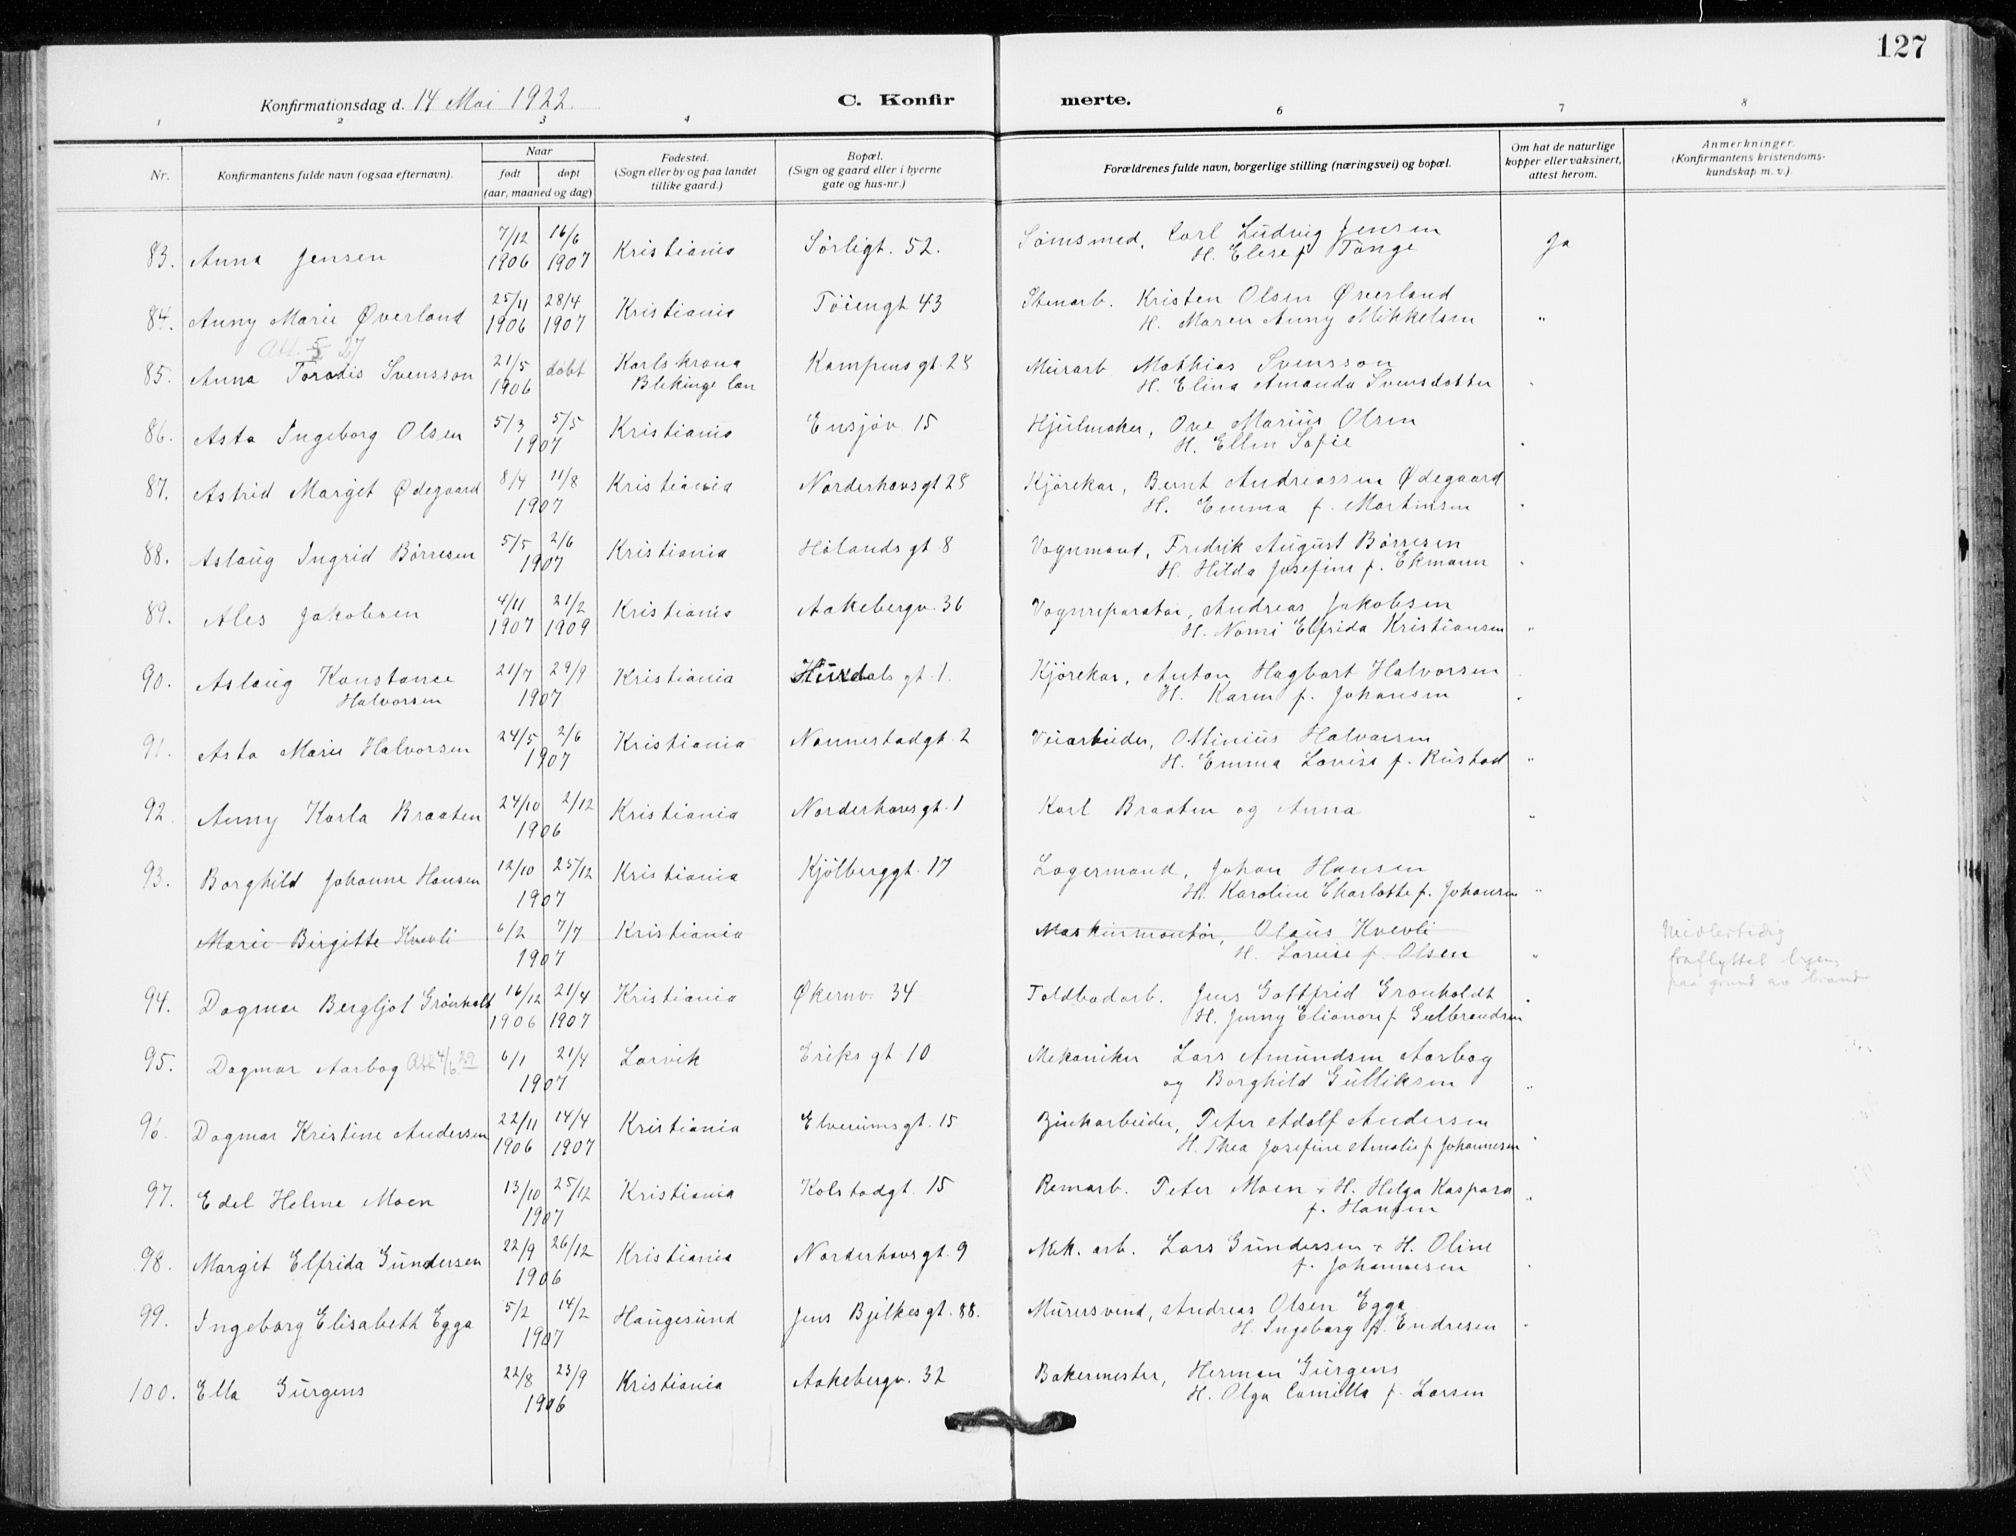 127
Konfirmationsdag d. 14 Mai 1922. C. Konfirmerte.
1 2 3 4 6 7 8
Nr. Konfirmantens fulde navn (ogsaa efternavn). Naar født døpt (aar, maaned og dag) Fødested. (Sogn eller by og paa landet tillike gaard.) Bopæl. (Sogn og gaard eller i byerne gate og hus-nr.) Forældrenes fulde navn, borgerlige stilling (næringsvei) og bopæl. Om hat de naturlige kopper eller vaksinert, attest herom. Anmerkninger. (Konfirmantens kristendomskundskap m. v.).
83. Anna Jensen 7/12 1906 16/6 1907 Kristiania Sörligt. 52. Sömsmed, Carl Ludvig Jensen Ja
H. Elise f. Tange
84. Anny Marie Øverland 25/11 1906 28/4 1907 Kristiania Töiengt 43 Stenarb. Kristen Olsen Øverland
H. Maren Anny Mikkelsen "
85. Anna Torodis Svensson 21/5 1906 döbt Karlskrona Kampensgt. 28 Murarb. Mathias Svensson
Blekinge län H. Elina Amanda Svensdotter "
86. Asta Ingeborg Olsen 5/3 5/5 1907 Kristiania Ensjöv. 15 Hjulmaker, Ove Marius Olsen
H. Ellen Sofie "
87. Astrid Margit Ødegaard 8/4 11/8 1907 Kristiania Norderhovsgt 28 Kjörekar, Bernt Andreassen Ødegaard
H. Emma f. Martinsen "
88. Aslaug Ingrid Börresen 5/5 2/6 1907 Kristiania Hölandsgt 8 Vognmand, Fredrik August Börresen
H. Hilda Josefine f. Ekmann "
89. Ales Jakobsen 4/11 1907 21/2 1909 Kristiania Aakebergv. 36 Vognreparatör, Andreas Jakobsen
H. Nomi Elfrida Kristiansen "
90. Aslaug Konstance 21/7 29/9 1907 Kristiania Hurdalsgt. 1. Kjörekar, Anton Hagbart Halvorsen
Halvorsen H. Karen f. Johansen "
91. Asta Marie Halvorsen 24/5 2/6 1907 Kristiania Nannestadgt. 2 Veiarbeider, Ottinius Halvorsen
H. Emma Lovise f. Rustad "
92. Anny Karla Braaten 24/10 2/12 1906 Kristiania Norderhovsgt. 1 Karl Braaten og Anna "
93. Borghild Johanne Hansen 12/10 25/12 1907 Kristiania Kjölberggt. 17 Lagermand, Johan Hansen
H. Karoline Charlotte f. Johansen "
Marie Birgitte Kvevli 6/2 7/7 1907 Kristiania Maskinmontör, Olaus Kvevli Midlertidig
H. Lovise f. Olsen " fraflyttet byen
paa grund av brand
94. Dagmar Bergljot Grönholdt 16/12 1906 21/4 1907 Kristiania Økernv. 34 Toldbodarb. Jens Gottfrid Gronholdt "
H. Jenny Elionore f. Gulbrandsen
95. Dagmar Aarbog Att 4/6 29 6/1 21/4 1907 Larvik Eriksgt. 10 Mekaniker Lars Amundsen Aarbog
og Borghild Gulliksen "
96. Dagmar Kristine Andersen 22/11 1906 14/4 1907 Kristiania Elverumsgt. 15 Zinkarbeider, Peter Adolf Andersen
H. Thea Josefine Amalie f. Johannesen "
97. Edel Helene Moen 13/10 25/12 1907 Kristiania Kolstadgt. 15 Remarb. Peter Moen + H. Helga Kaspara "
f. Hansen
98. Margit Elfrida Gundersen 22/9 26/12 1906 Kristiania Norderhovsgt. 9 Mek. arb. Lars Gundersen + H. Oline
f. Johannesen "
99. Ingeborg Elisabeth Egga 5/2 14/2 1907 Haugesund Jens Bjelkesgt. 88. Murersvend, Andreas Olsen Egga
H. Ingeborg f. Endresen "
100. Ella Gürgens 22/8 23/9 1906 Kristiania Aakebergv. 32 Bakermester, Herman Gürgens
H. Olga Camilla f. Larsen